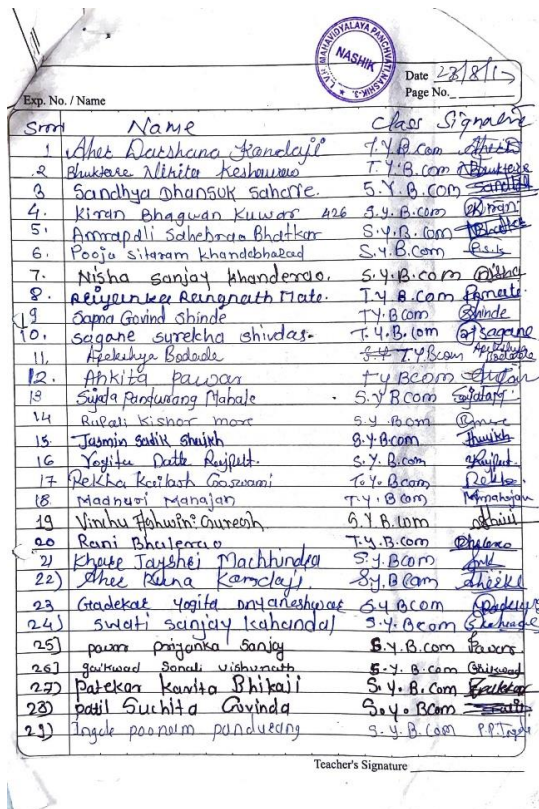 L.V.H. MAHAVIDYALAYA PANCHVATI NASHIK-3.
NASHIK
Date 23/8/17
Page No.
Exp. No. / Name
Name Class Signature
1 Aher Darshana Kandaji T.Y.B.com Aher
2 Bhuktare Nikita Keshavrao T.Y.B.com Bhuktare
3 Sandhya Dhansuk saherre. S.Y.B.com Sandhya
4. Kiran Bhagwan Kuwar 426 S.y.B.com Kiran
5. Amrapali Sahebrao Bhatkar S.y.B.com Bhatkar
6. Pooja Sitaram Khandebharad S.y.B.com
7. Nisha Sanjay Khanderao. S.Y.B.com Nisha
8. Priyanka Rangnath Mate. T.Y.B.com Prmate.
9 Sapna Govind Shinde TY.B.com Shinde
10. Sagane surekha shivdas. T.Y.B.com sagane
11. Apekshya Bodade T.YBcom
12. Ankita pawar TYBcom
13 Sujata Pandurang Mahale S.YBCOM Sujatap
14 Rupali Kishor more S.y.Bom
15. Jasmin Sadik Shaikh S.Y.Bcom Shaikh
16 Yogita Datta Rajput. S.Y.B.com Rajput.
17 Rekha Kailash Goswami T.Y.B.com Rekha
18. Madhuri Mahajan T.Y.B.com Mmahajan
19 Vinchu Ashwini Suresh S.Y.B.com
20 Rani Bhalerao T.Y.B.com Bhalerao
21 Khare Jayshri Machhindra S.Y.Bcom
22) Aher Kandaji S.y.B.Com
23 Gadekar yogita Dnyaneshwar S.Y Bcom
24) swati sanjay kahandal S.Y.Bcom
25] pawar priyanka Sanjay S.Y.B.com Pawar
26] gaikwad Sonali vishwnath S.Y.B.com Gaikwad
27) Patekar Kavita Bhikaji S.y.B.com
28) patil Suchita Govinda S.y.BCom
29) Ingale poonam pandurang S.y.B.com P.P.Ingale
Teacher's Signature